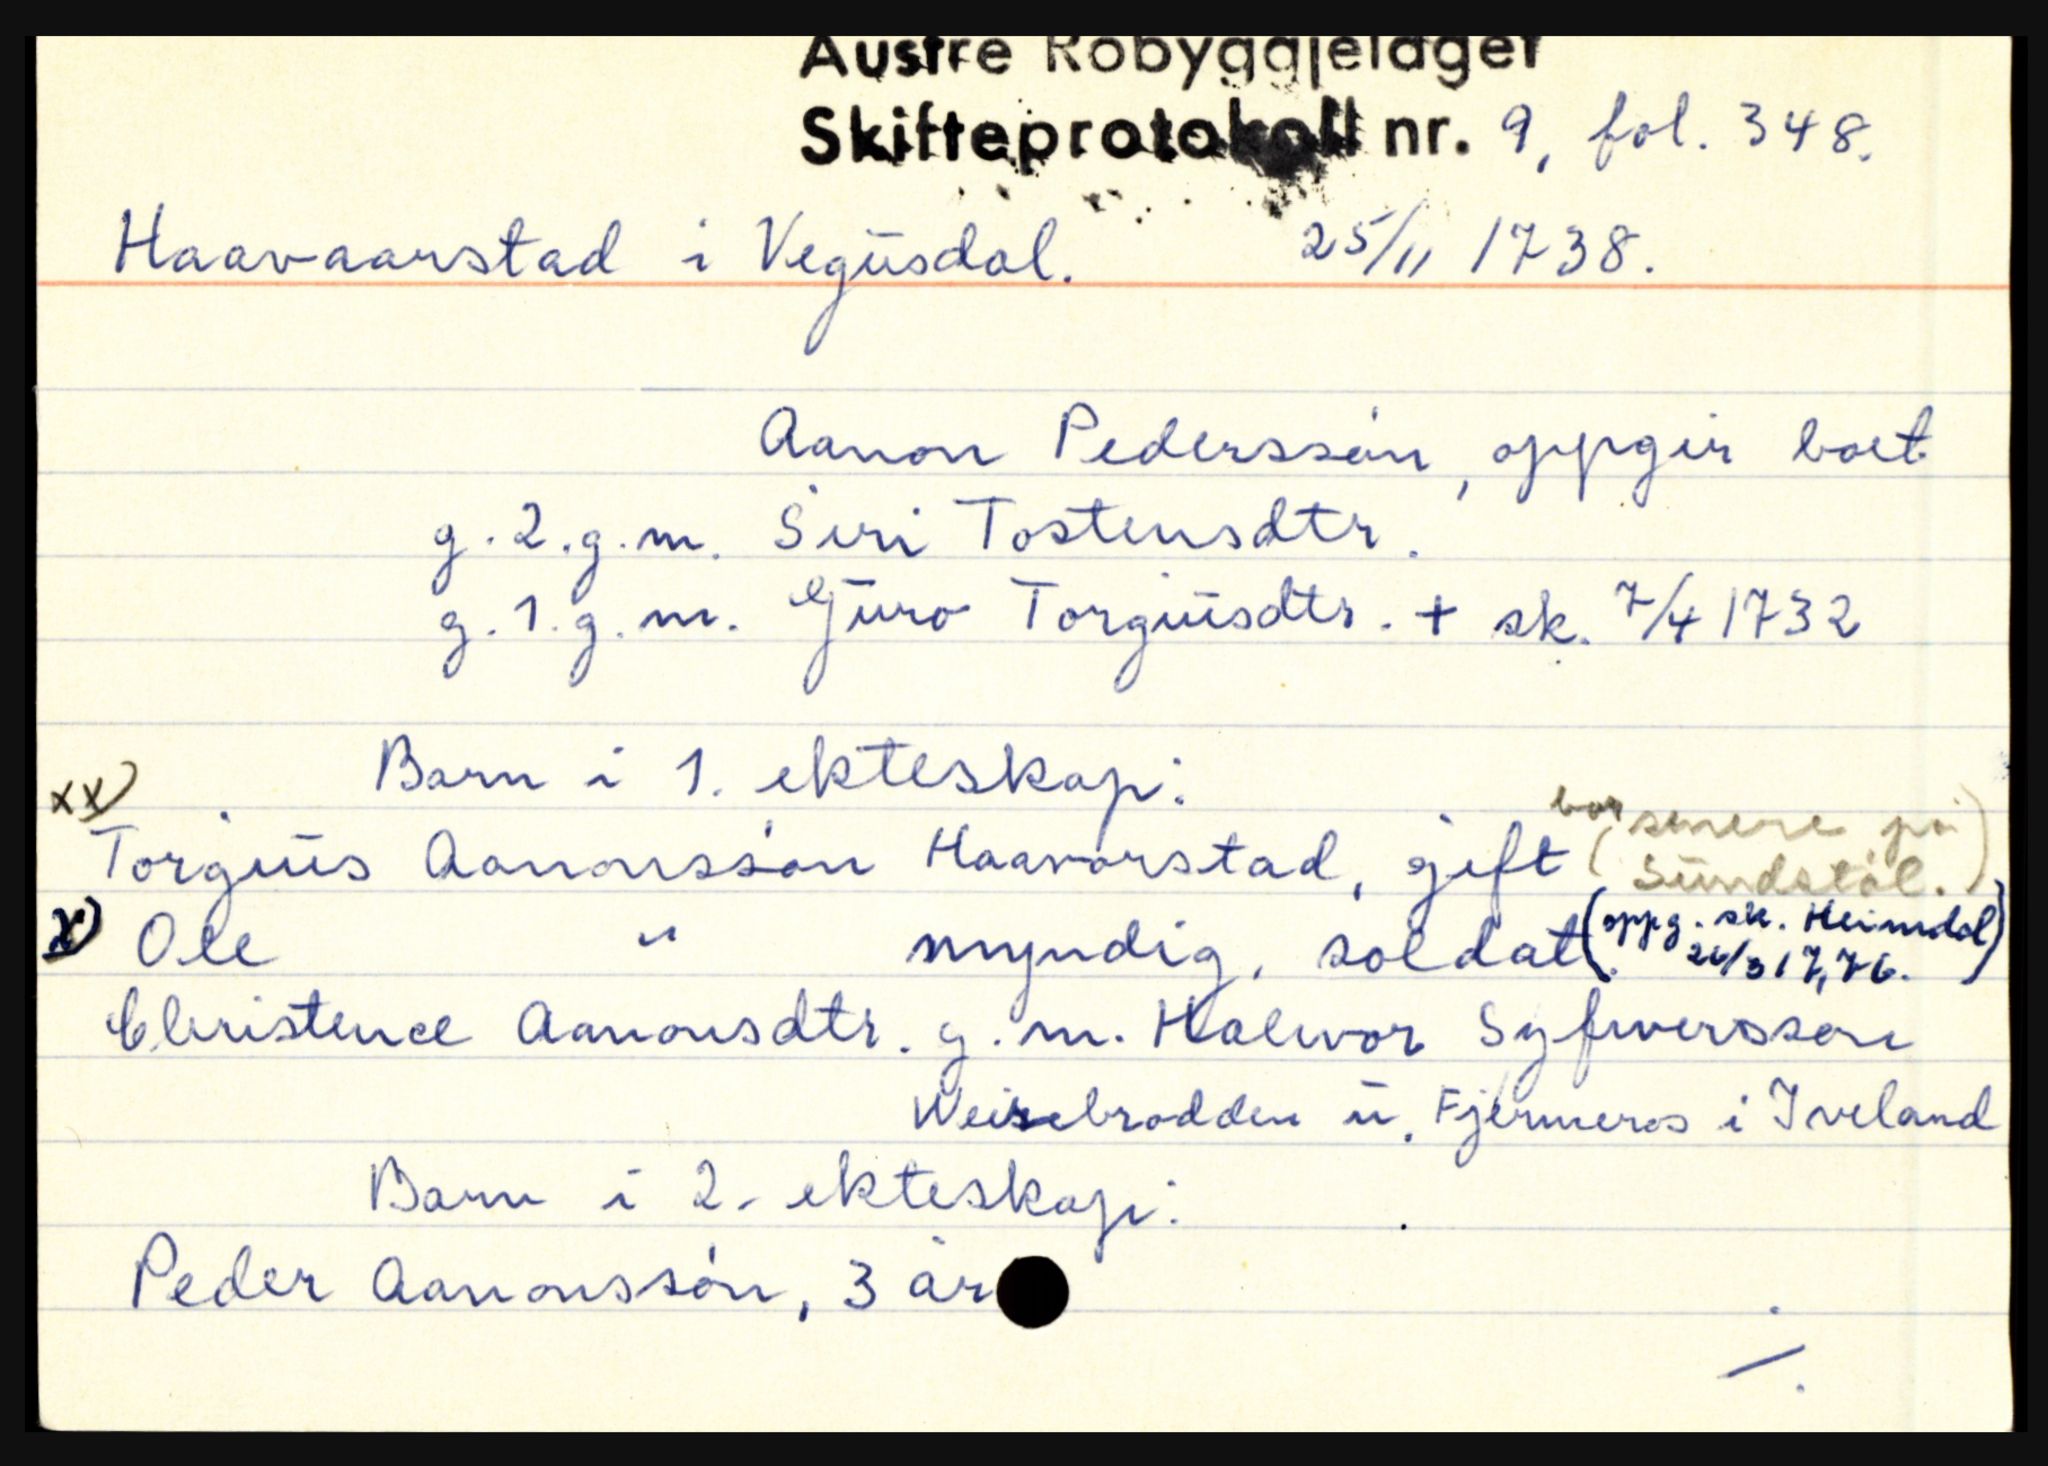 Austre Robyggjelaget
Skifteprotokoll nr. 9, fol. 348.
Haavaarstad i Vegusdal. 25/11 1738.
Aanon Pederssøn, oppgir boet
g. 2. g. m. Siri Tostensdtr.
g. 1. g. m. Guro Torgiusdtr. + sk. 7/4 1732
Barn i 1. ekteskap:
xx)
Torgius Aanonssøn Haavorstad, gift (bor senere på
Sundstøl.)
x) Ole " myndig, soldat. (oppg. sk. Heimdal
26/3 1776.)
Christence Aanonsdtr. g. m. Halvor Syfwersøn
brodden u. Fjermeros i Iveland
Barn i 2. ekteskap:
Peder Aanonssøn, 3 år